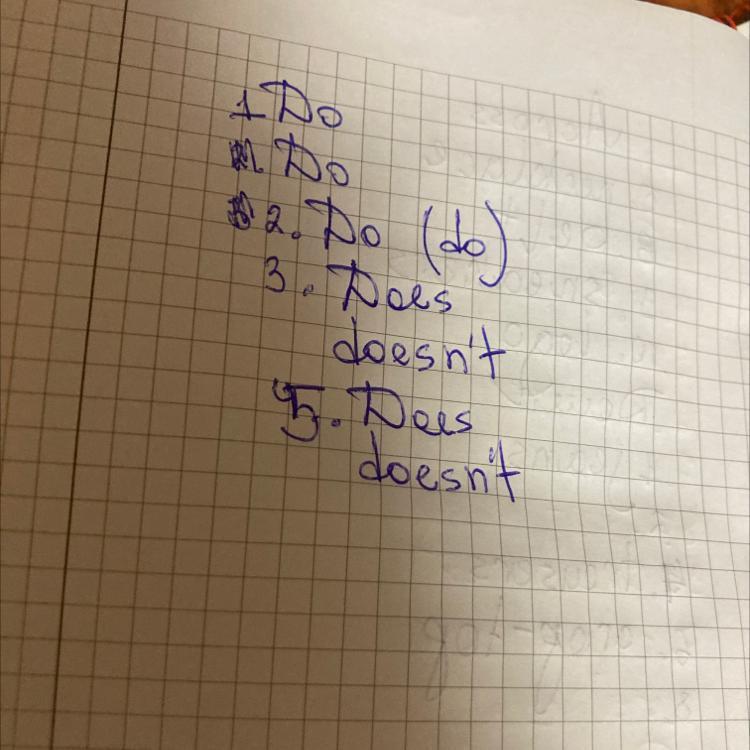 1 Do
Do
2. Do (do)
3. Does
doesn't
5. Does
doesn't